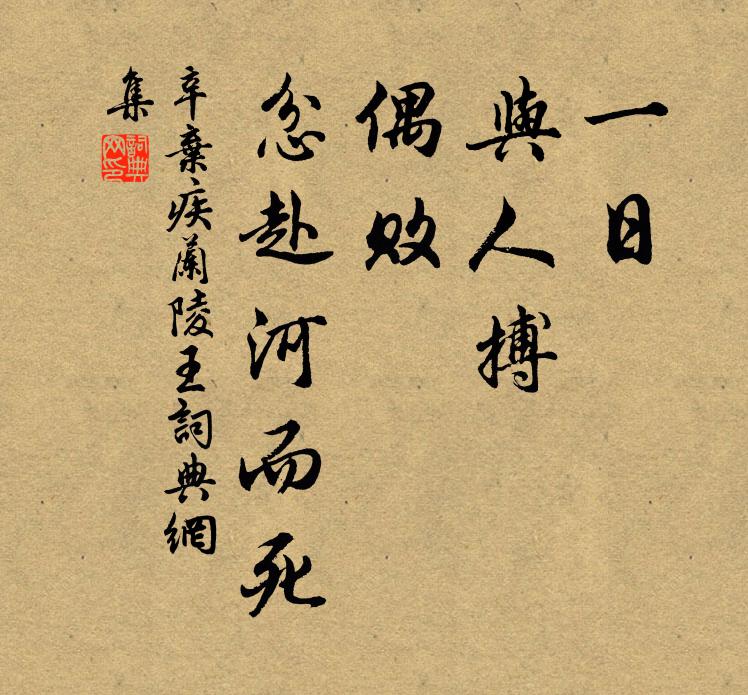 一日
與人搏
偶敗
忿赴河而死
辛棄疾蘭陵王詞典網
集
詞典網印